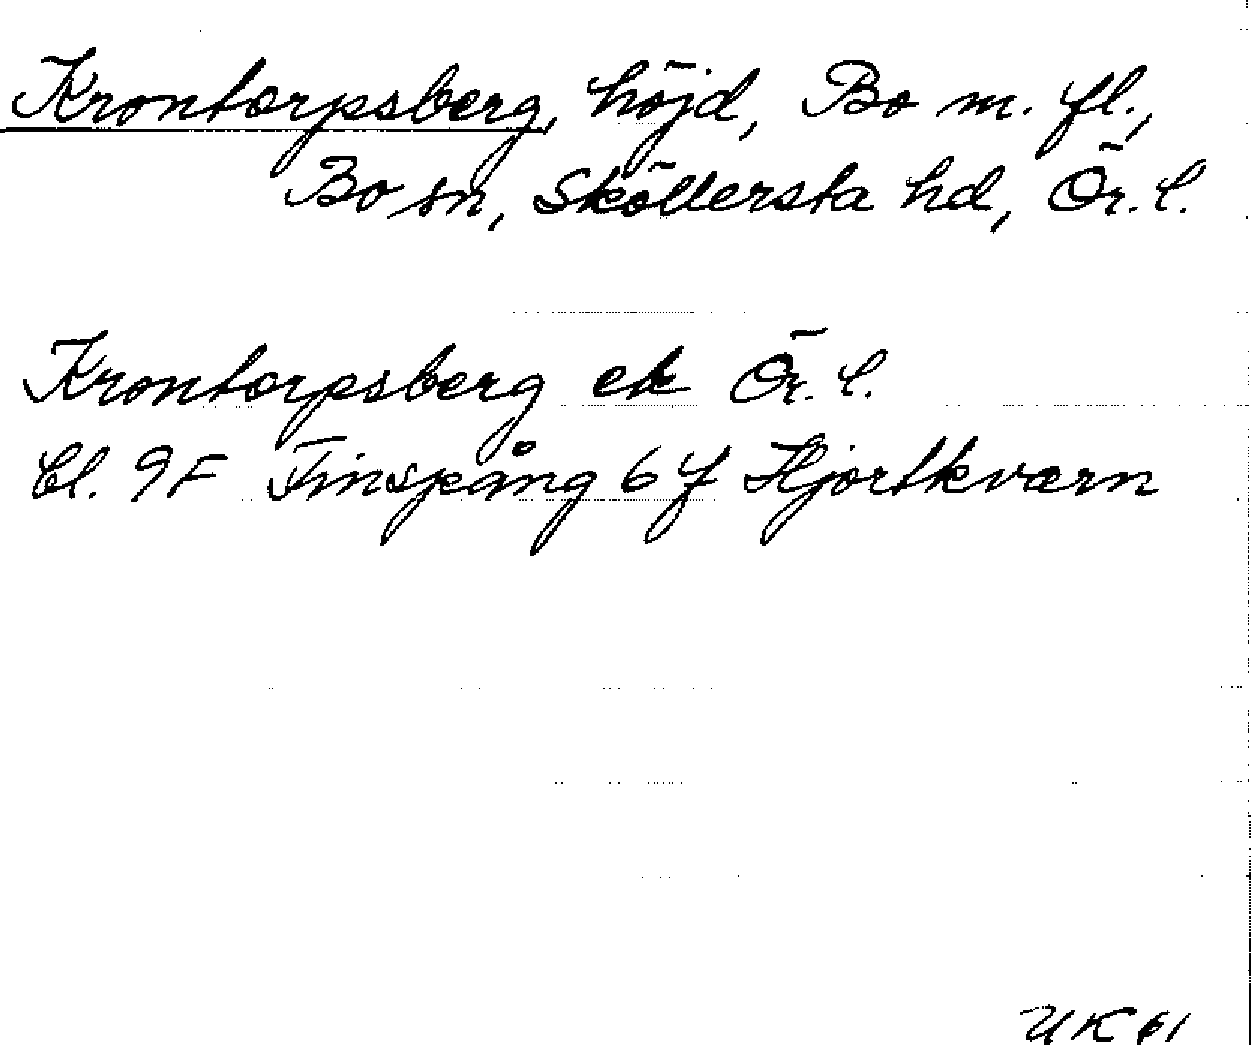 Krontorpsberg, höjd, Bo m. fl.,
Bo sn, Sköllersta hd, Ör. l.
Krontorpsberg ek Ör. l.
bl. 9F Finspång 6 f Hjortkvarn
UK 61